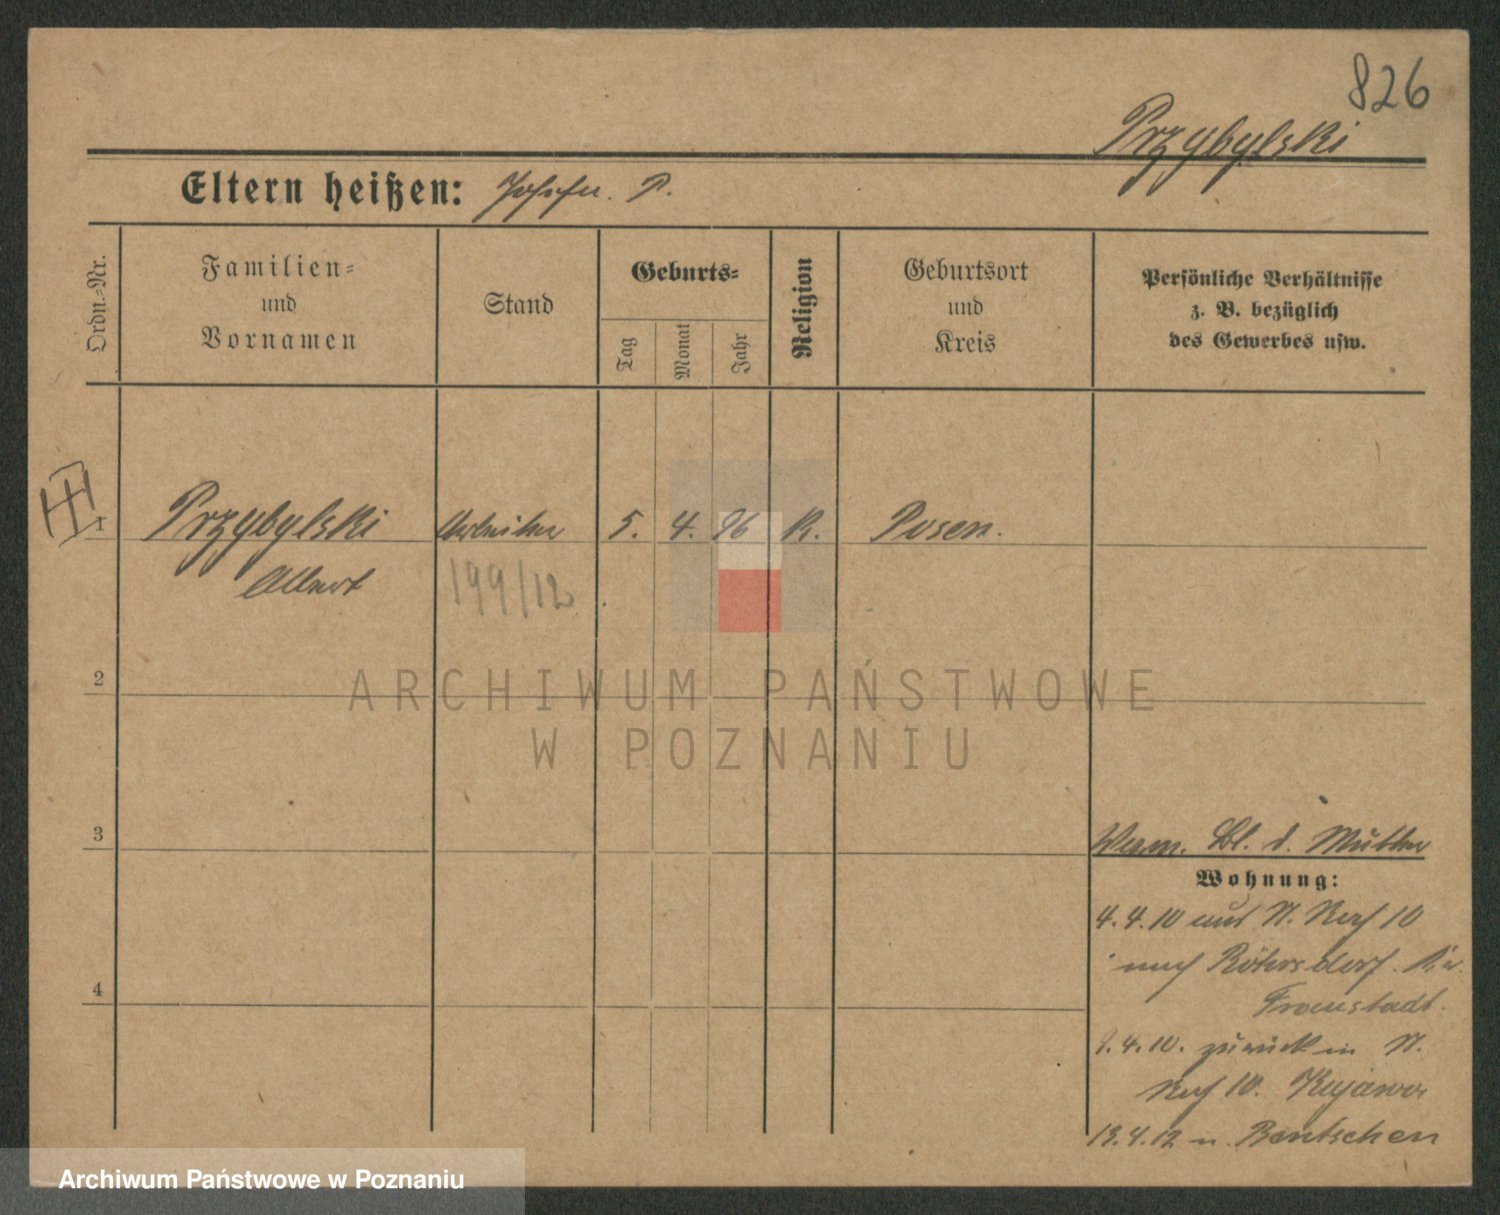 826
Przybylski
Eltern heißen: Josefa. P.
Ordn.-Nr.
Familien-
und
Vornamen
Stand
Geburts-
Tag
Monat
Jahr
Religion
Geburtsort
und
Kreis
Persönliche Verhältnisse
z. B. bezüglich
des Gewerbes usw.
1
Przybylski Arbeiter 5. 4. 96 K. Posen.
Albert
199/12
2
ARCHIWUM PAŃSTWOWE
W POZNANIU
3
Bl. d. Mutter
Wohnung:
4.4.10 aus N. 10
nach Röhrsdorf. Kr.
Fraustadt.
4.10. zurück in N.
10. Kujawa
13.4.12 n. Bentschen
4
Archiwum Państwowe w Poznaniu